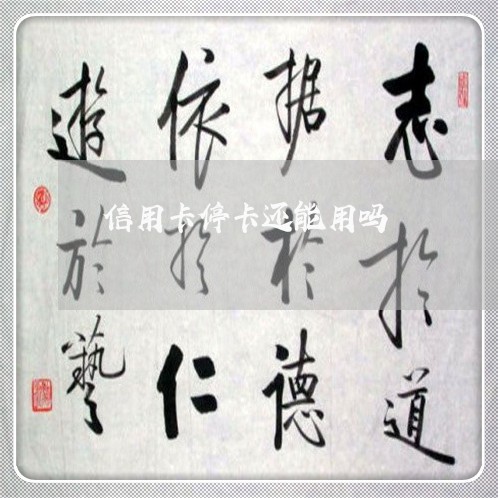 志於道
据於德
依於仁
遊於藝
信用卡停卡还能用吗